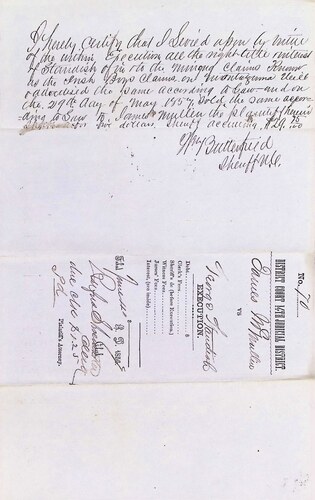 I hereby Certify that I Levied upon by virtue
of the within Execution all the right title interest
of Standish of in & to the Mining Claims Known
as the Irish Boys Claims on Montezuma Hill
& advertised the same According to Law and on
the 29th day of May 1857 Sold the same accor
ding to Law to James McMullen the plaintiff herein
for five dollars, Sheriff accruing $29.75
Wm Butterfield
Sheriff N.C.
No. 71
DISTRICT COURT 14TH JUDICIAL DISTRICT.
James McMullen
vs
George Standish
EXECUTION.
Debt, $
Clerk's Fees,
Sheriff's do (before Execution,)
Witness Fees,
Jurors' Fees,
Interest, (see inside)
Filed
A. D. 185
Rufus Shoemaker
Clerk
due Clk $1.25
pd
Plaintiff's Attorney.